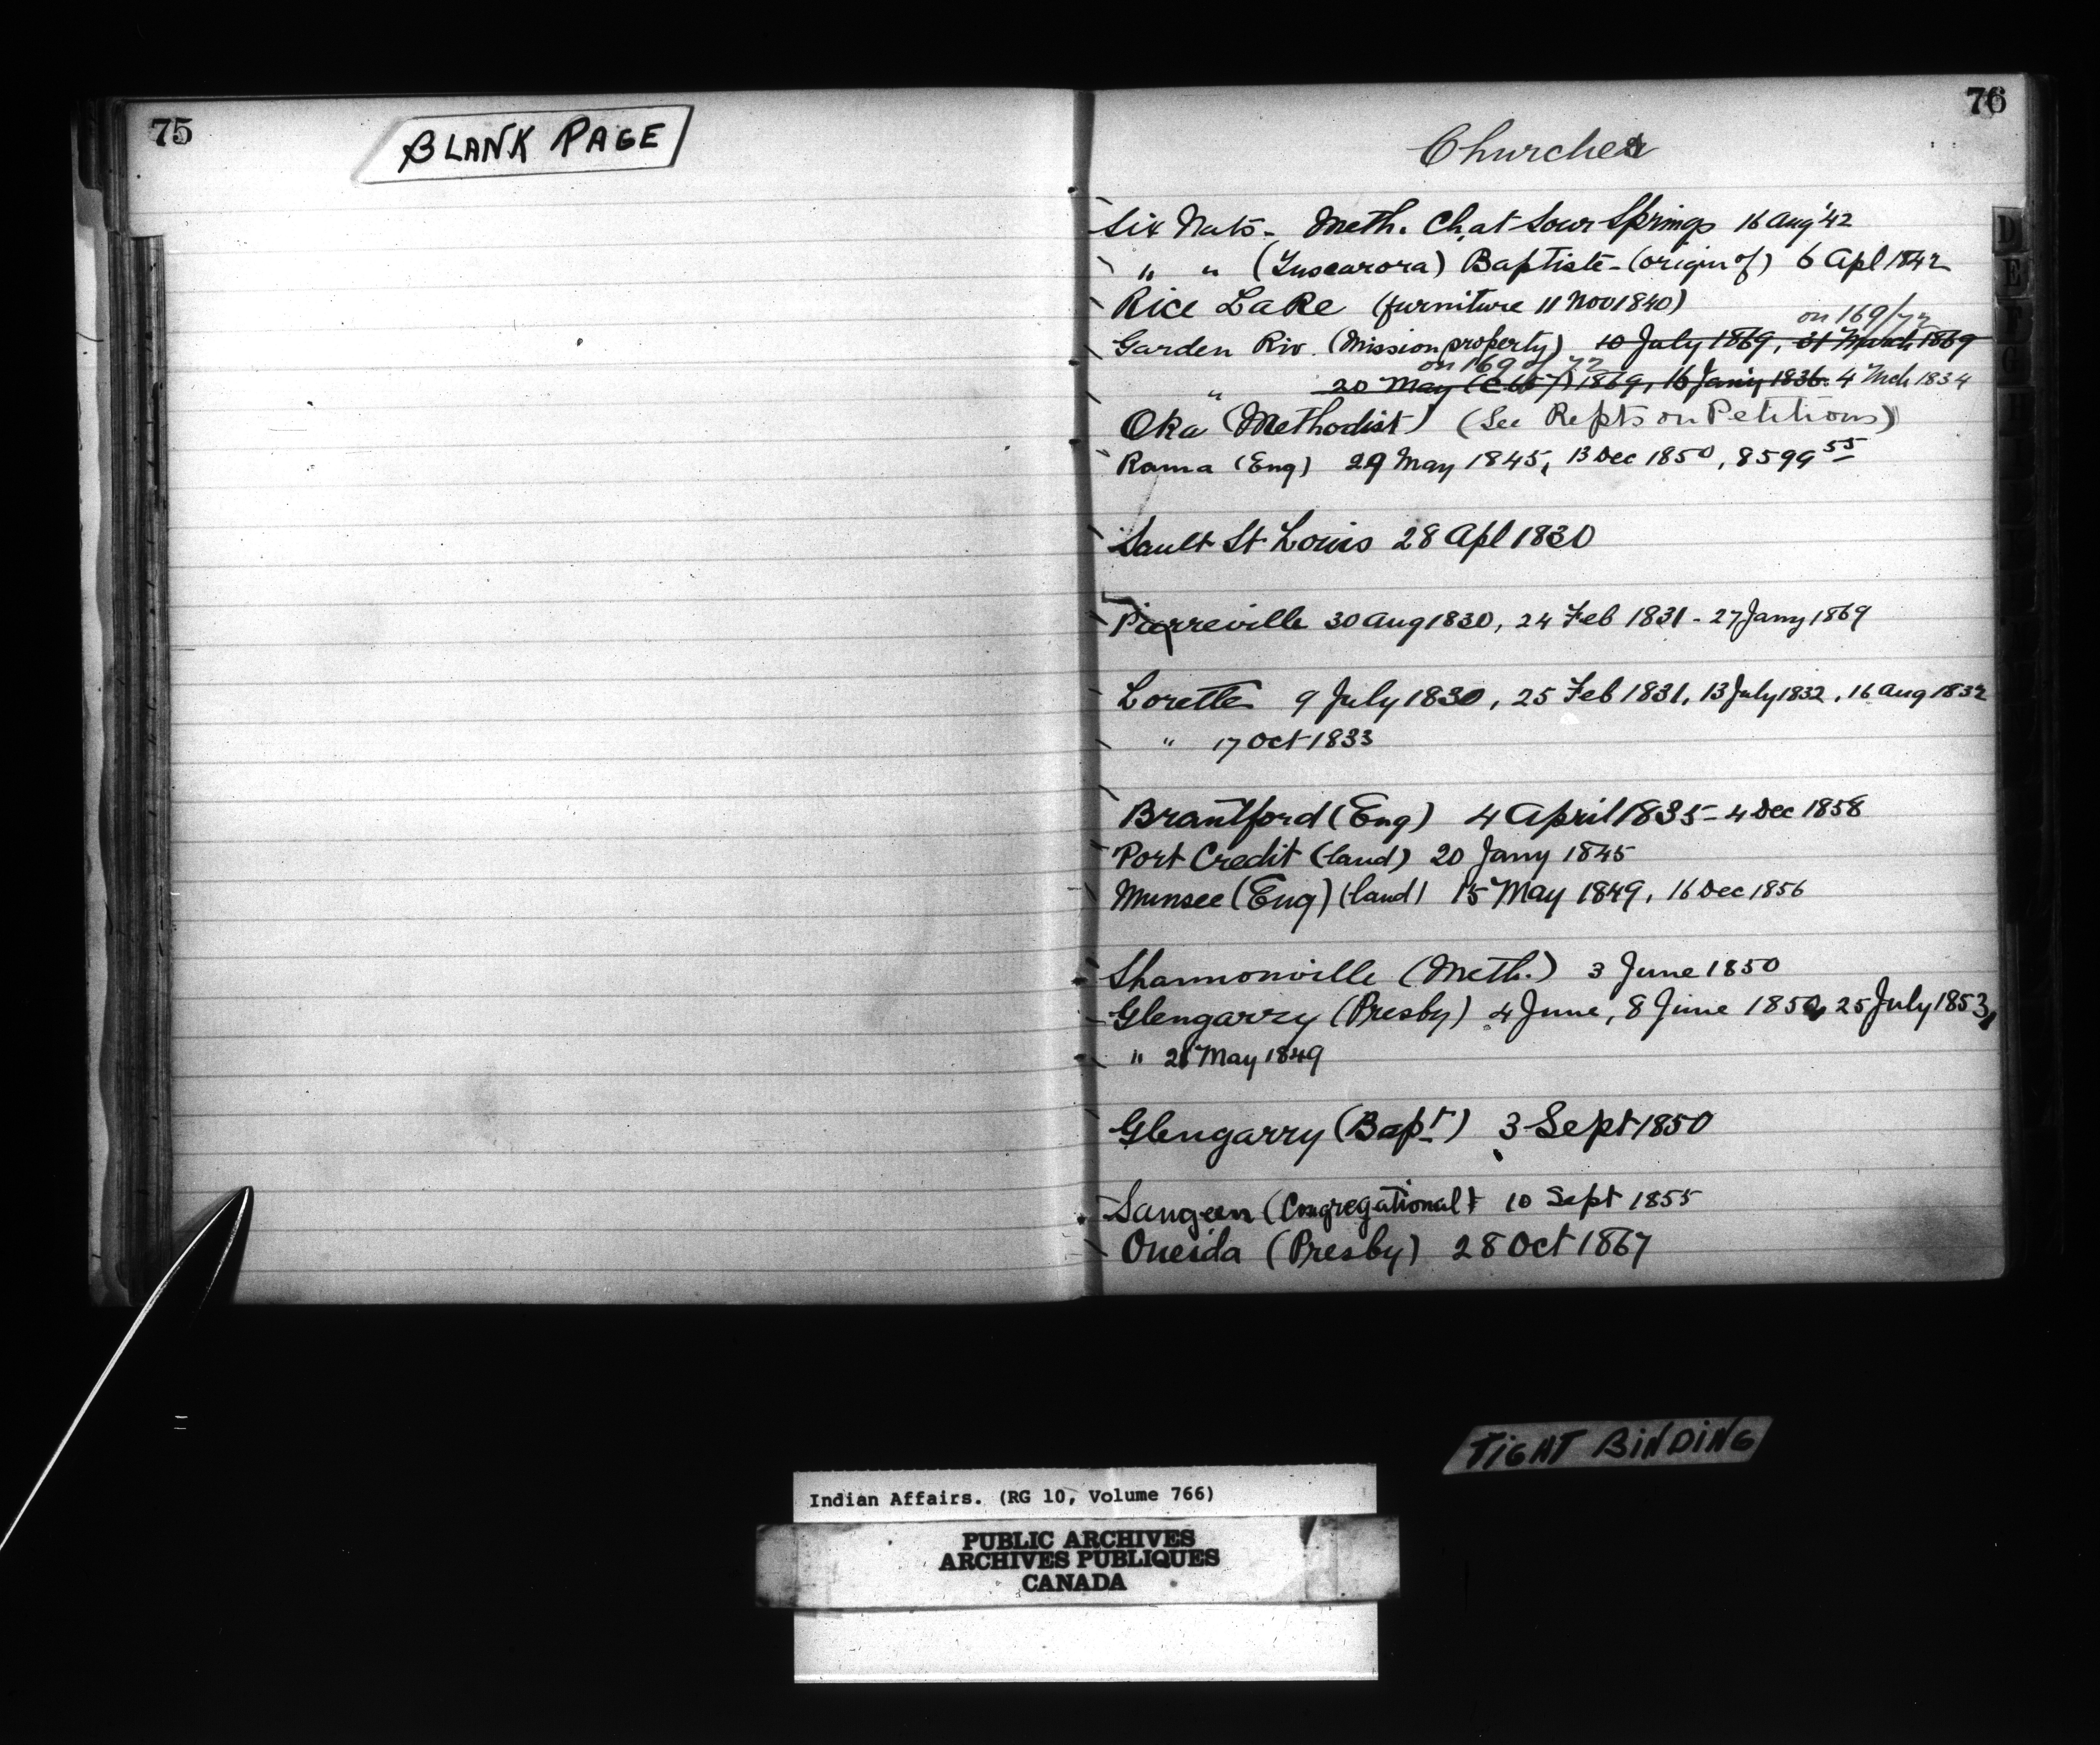 75
BLANK PAGE
76
Churches
Six Nats. Meth. Ch. at Sour Springs 16 Aug '42
" " (Tuscarora) Baptiste - (origin of) 6 Apl 1842
Rice Lake (furniture 11 Nov 1840)
on 169/72
Garden Riv. (Mission property) 10 July 1869, 31 March 1869
on 169 of 72
" 20 May 1869, 16 Jany 1836. 4 Mch 1834
Oka (Methodist) (See Repts on Petitions)
Rama (Eng) 29 May 1845, 13 Dec 1850, 8599 55
Sault St Louis 28 Apl 1830
Pierreville 30 Aug 1830, 24 Feb 1831 - 27 Jany 1869
Lorette 9 July 1830, 25 Feb 1831, 13 July 1832, 16 Aug 1832
" 17 Oct 1833
Brantford (Eng) 4 April 1835 - 4 Dec 1858
Port Credit (land) 20 Jany 1845
Munsee (Eng) (land) 15 May 1849, 16 Dec 1856
Shannonville (Meth.) 3 June 1850
Glengarry (Presby) 4 June, 8 June 1850, 25 July 1853,
" 21 May 1849
Glengarry (Bapt) 3 Sept 1850
Saugeen (Congregational) 10 Sept 1855
Oneida (Presby) 28 Oct 1867
D
E
F
G
TIGHT BINDING
Indian Affairs. (RG 10, Volume 766)
PUBLIC ARCHIVES
ARCHIVES PUBLIQUES
CANADA